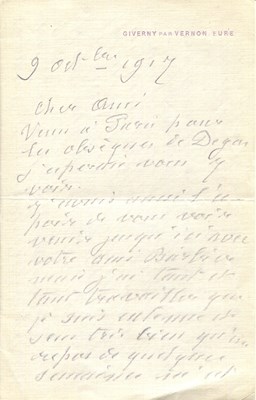 GIVERNY PAR VERNON, EURE
9 Octbre 1917
Cher Ami
Venu à Paris pour
les obsèques de Degas
j'aperçu vous y
voir.
j'avais aussi l'es
poir de vous voir
venir jusqu'ici avec
votre ami Barbier
mais j'ai tant et
tant travailler que
je suis exténué et
sens très bien qu'un
repos de quelques
semaines m'est